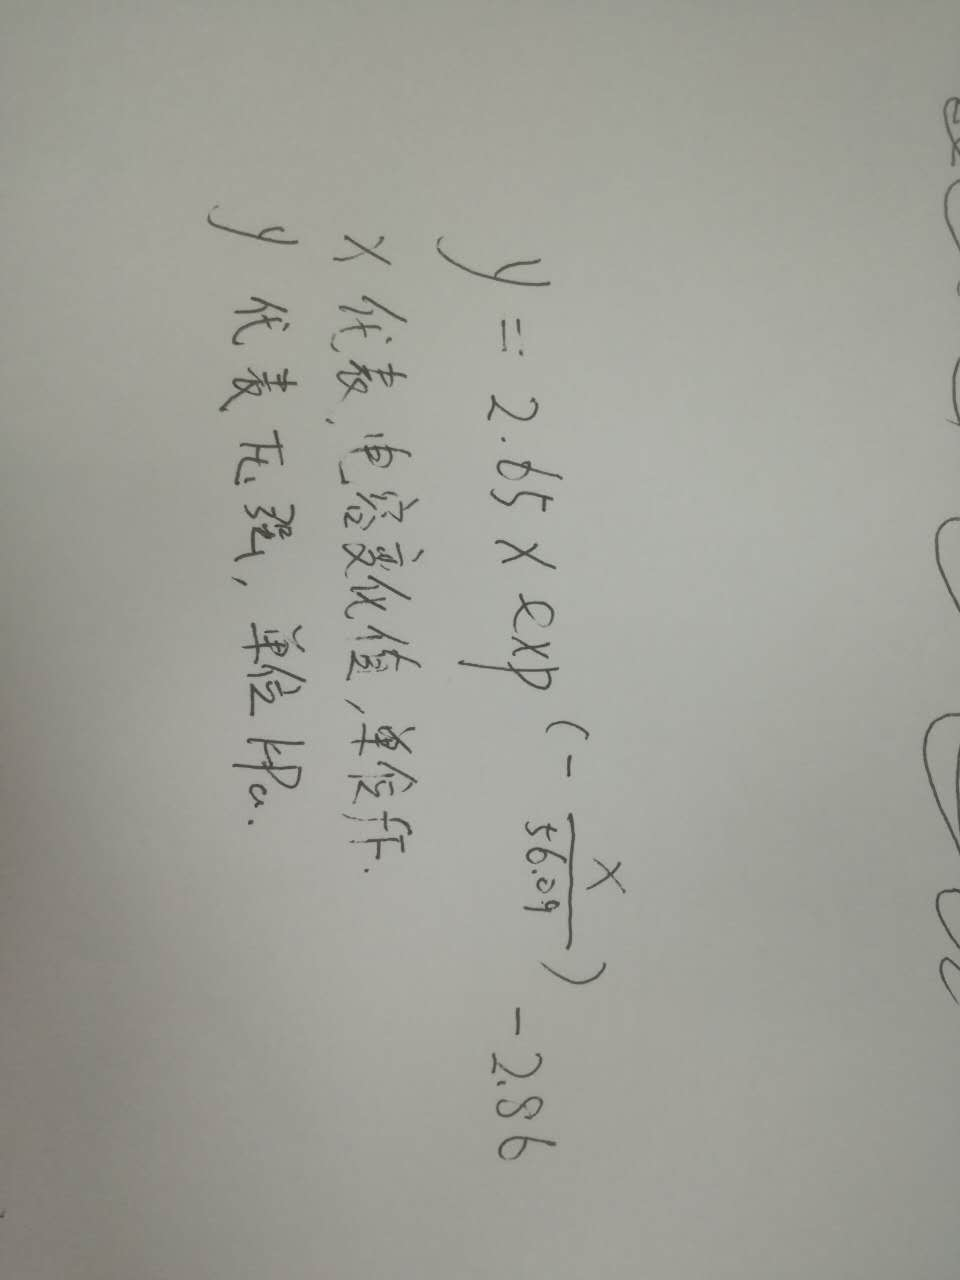 y = 2.65 × exp (- x/56.09) - 2.86
x 代表电容变化值,单位
y 代表压强,单位 kPa.